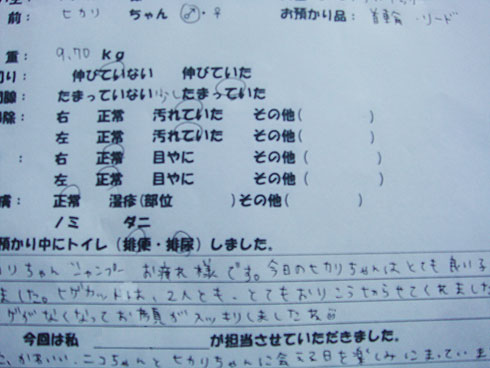 前 ヒカリ ちゃん ♂・♀ お預かり品: 首輪・リード
重: 9.70 kg
切り: 伸びていない 伸びていた
たまっていない 少したまっていた
掃除: 右 正常 汚れていた その他( )
左 正常 汚れていた その他( )
: 右 正常 目やに その他( )
左 正常 目やに その他( )
膚: 正常 湿疹(部位 )その他( )
ノミ ダニ
預かり中にトイレ(排便・排尿)しました。
カリちゃん シャンプー お疲れ様です。今日のヒカリちゃんはとても良い子
ました。ヒゲカットは、2人とも、とてもおりこうでさせてくれました
ゲがなくなってお顔がスッキリしましたね
今回は私 が担当させていただきました。
かわいい、ニコちゃんとヒカリちゃんに会える日を楽しみにまっていま